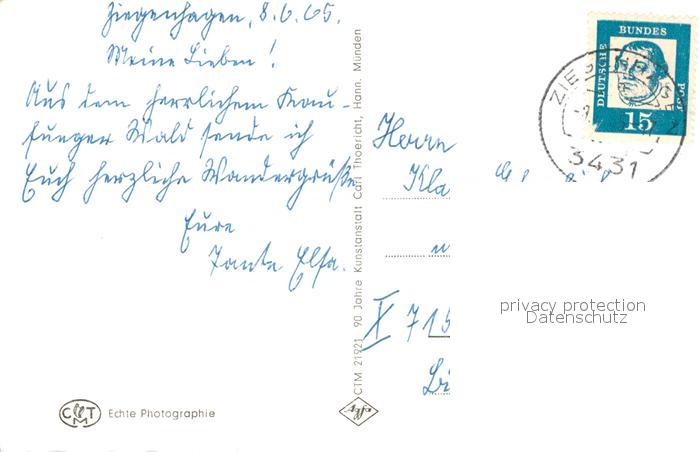 Ziegenhagen, 8.6.65.
Meine Lieben!
Aus dem herrlichem Kau-
funger Wald sende ich
Euch herzliche Wandergrüße
Eure
Tante Elsa.
CTM 21921 90 Jahre Kunstanstalt Carl Thoericht, Hann. Münden
Herrn
Kla
u
X 715
DEUTSCHE
BUNDES
POST
15
ZIEGENHAGEN
3431
privacy protection
Datenschutz
CTM Echte Photographie
Agfa